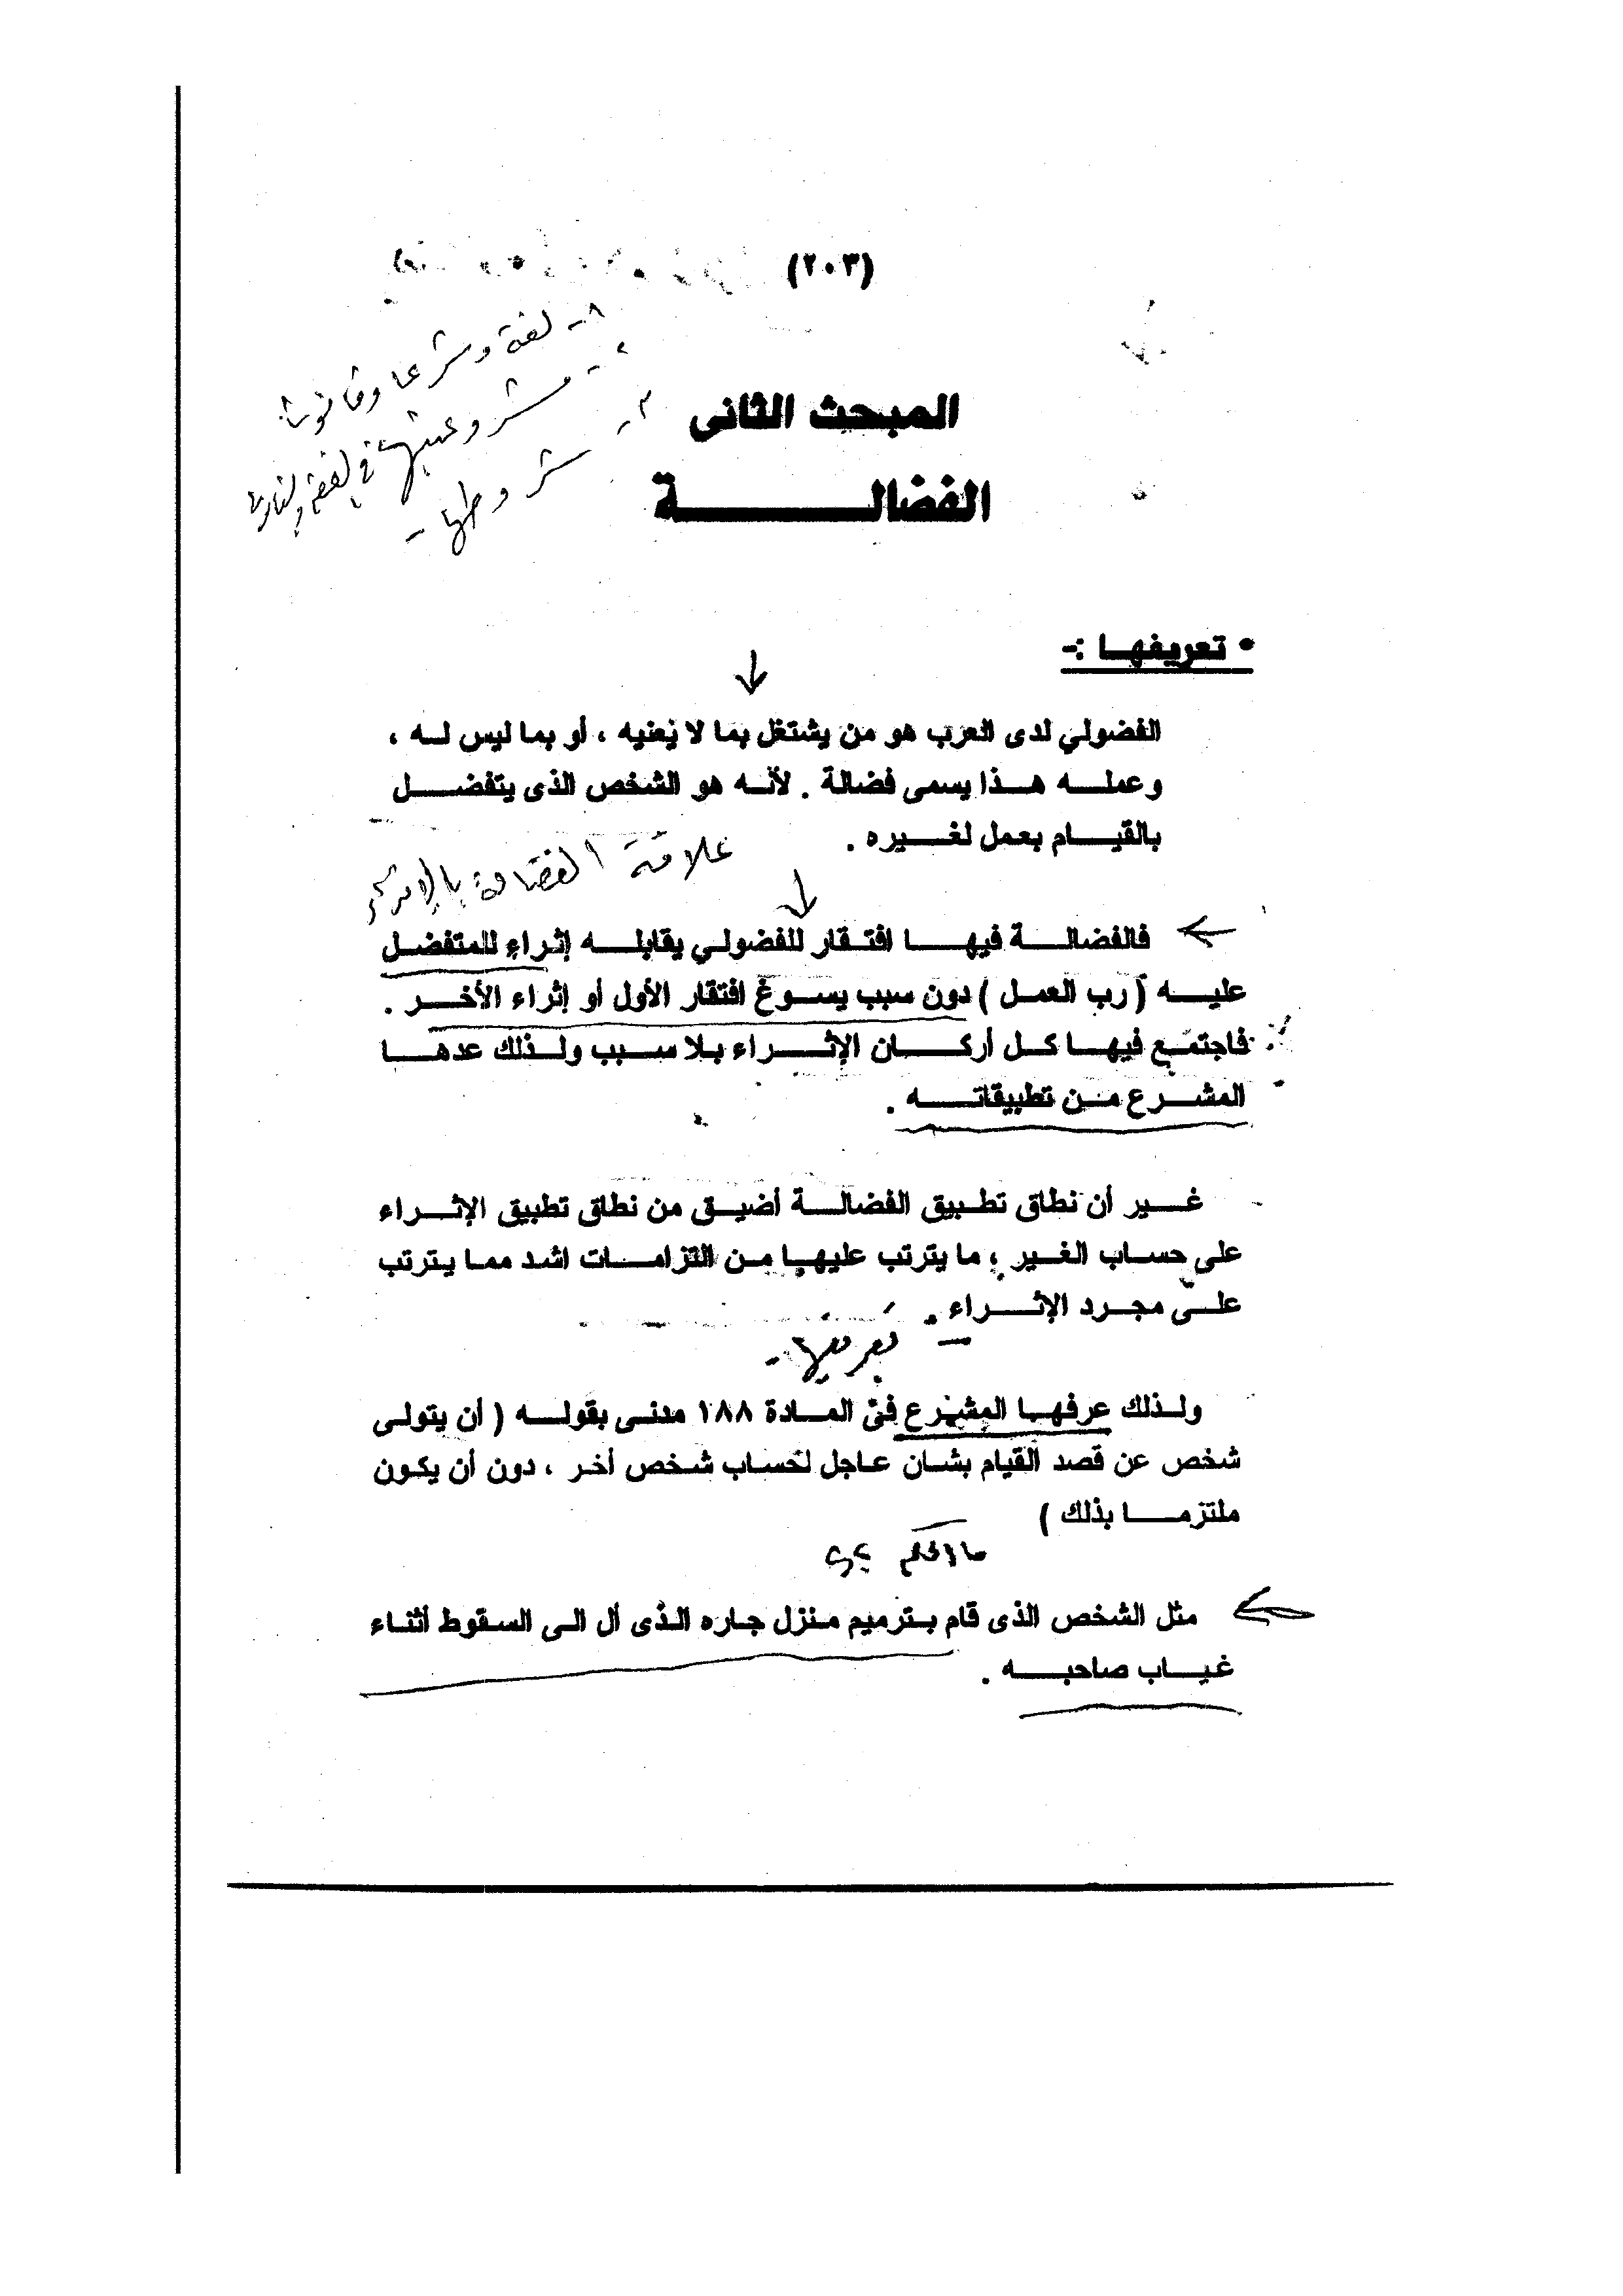 (٢٠٣)
١- لغة وشرعا وقانونا
٢- مشروعيتها في الفقه والقانون
٣- شروطها -
المبحث الثانى
الفضالــة
• تعريفهـا :-
الفضولي لدى العرب هو من يشتغل بما لا يعنيه ، أو بما ليس لـه ،
وعملـه هـذا يسمى فضالة . لأنـه هو الشخص الذى يتفضـل
بالقيـام بعمل لغـيره .
علاقة الفضالة بالإثراء
فالفضالـة فيهـا افتـقار للفضولي يقابلـه إثراء للمتفضل
عليـه ( رب العمـل ) دون سبب يسـوغ افتقار الأول أو إثراء الأخـر .
فاجتمـع فيهـا كـل أركـان الإثـراء بـلا سـبب ولـذلك عدهـا
المشـرع مـن تطبيقاتـه .
غـير أن نطاق تطـبيق الفضالـة أضيـق من نطاق تطبيق الإثـراء
على حسـاب الغـير ، ما يترتب عليهـا مـن التزامـات اشد ممـا يـترتب
علـى مجـرد الإثـراء .
- تعريفها -
ولـذلك عرفهـا المشـرع فى المـادة ١٨٨ مدنـى بقولـه ( أن يتولـى
شخص عن قصد القيام بشـان عـاجل لحسـاب شـخص أخـر ، دون أن يكـون
ملتزمـا بذلك )
ما الحكم ؟؟
مثل الشخص الذى قام بـترميم مـنزل جـاره الـذى أل الـى السـقوط أثنـاء
غيـاب صاحبـه .